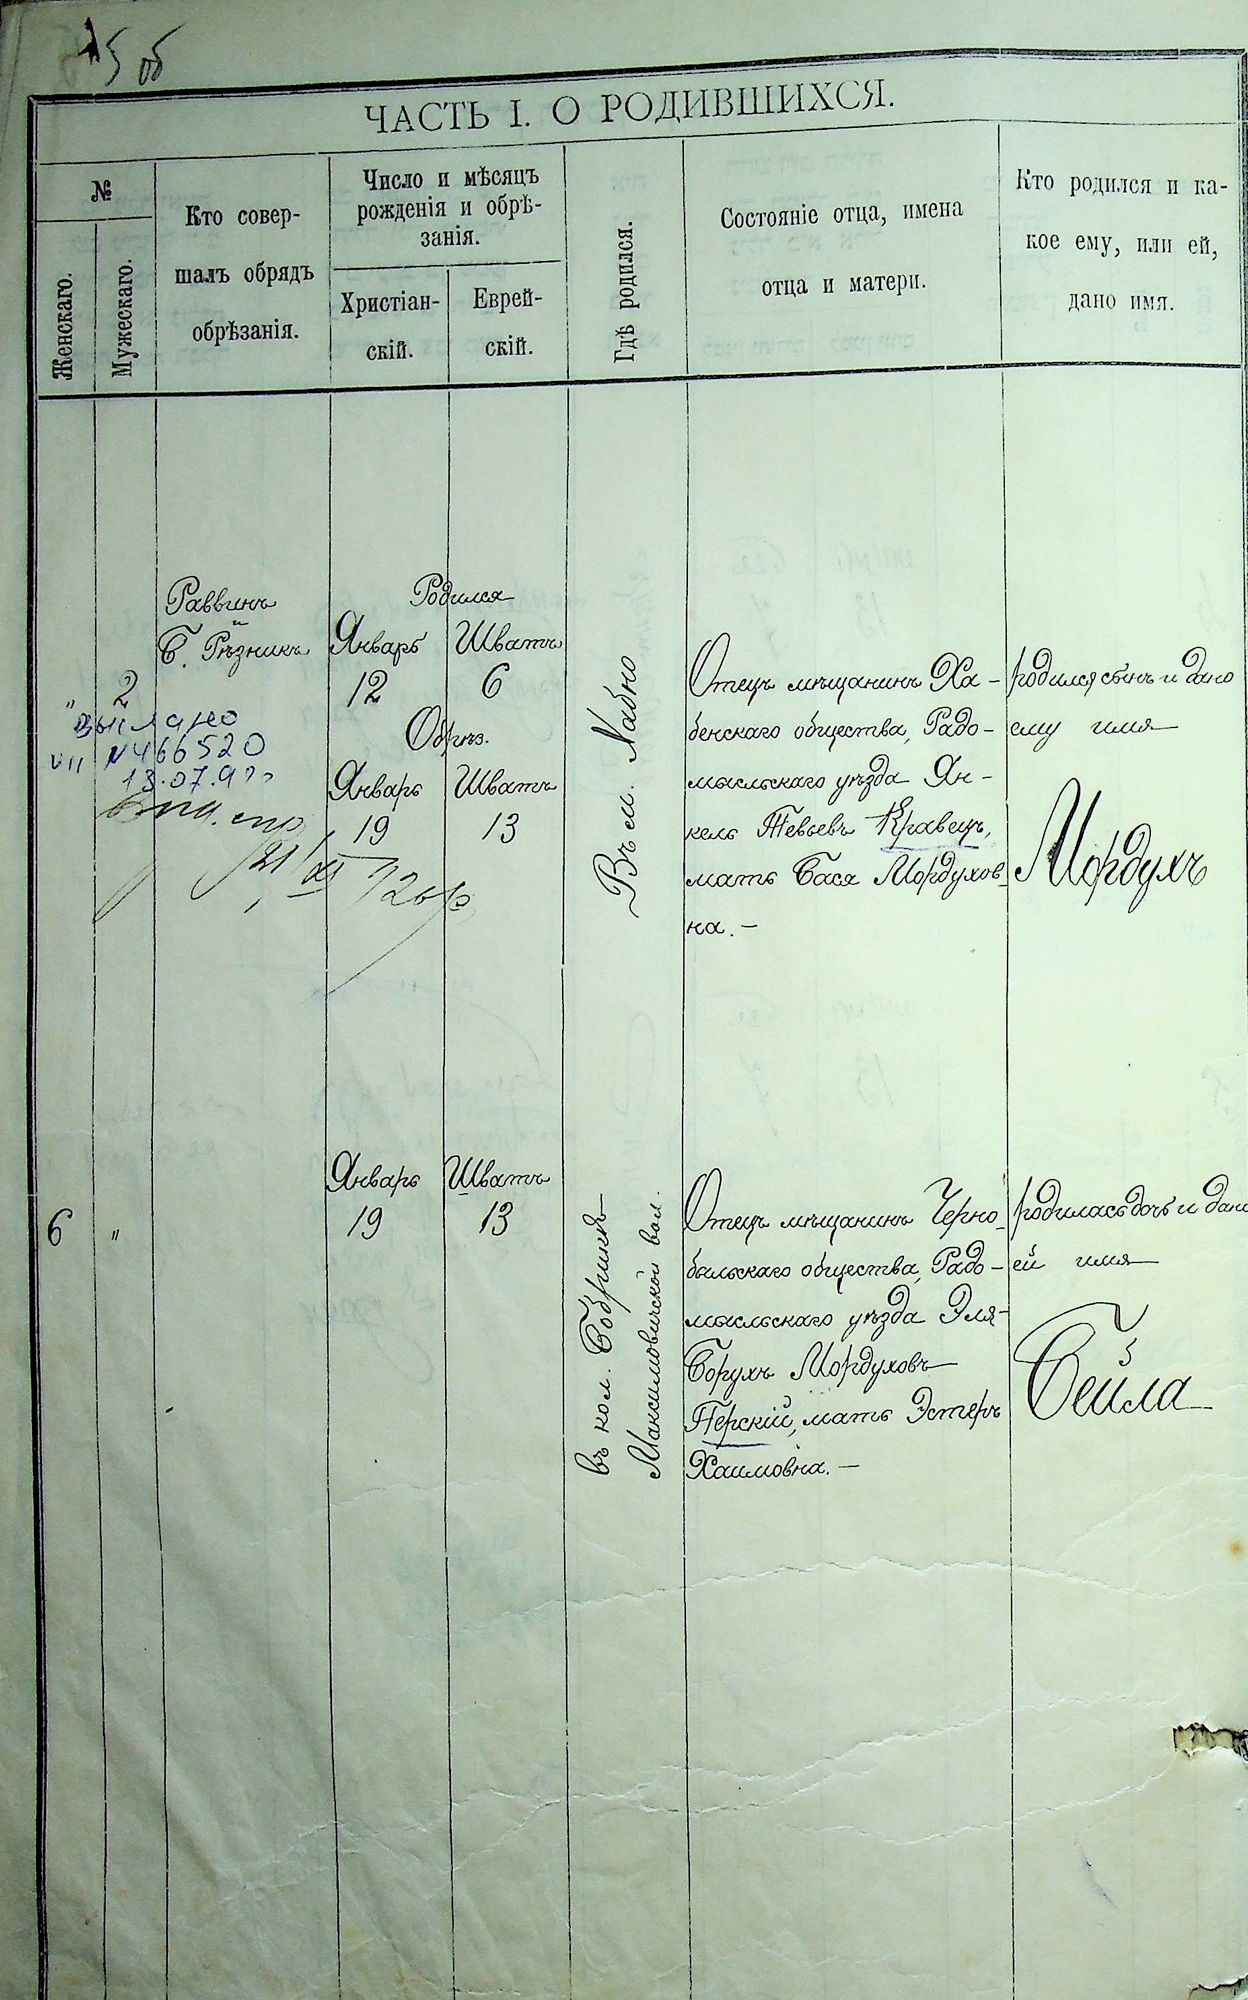 5 об
ЧАСТЬ I. О РОДИВШИХСЯ.
№
Женскаго.
Мужескаго.
Кто совер-
шалъ обрядъ
обрѣзанія.
Число и мѣсяцъ
рожденія и обрѣ-
занія.
Христіан-
скій.
Еврей-
скій.
Гдѣ родился.
Состояніе отца, имена
отца и матери.
Кто родился и ка-
кое ему, или ей,
дано имя.
"
2
Раввинъ
и
Б. Рѣзникъ
Родился
Январь Шватъ
12 6
Обрѣз.
Январь Шватъ
19 13
Въ м. Хабно
Отецъ мѣщанинъ Ха-
бенскаго общества, Радо-
мысльскаго уѣзда Ян-
кель Тевьевъ Кравецъ,
мать Бася Мордухов-
на. —
родился сынъ и дано
ему имя
Мордухъ
выслано
VII №466520
13.07.9
21/XI
6
"
Январь Шватъ
19 13
въ кол. Бобринкъ
Максимовичской вол.
Отецъ мѣщанинъ Черно-
быльскаго общества, Радо-
мысльскаго уѣзда Эля-
Борухъ Мордуховъ
Перскій, мать Эстеръ
Хаимовна. —
родилась дочь и дано
ей имя
Бейла